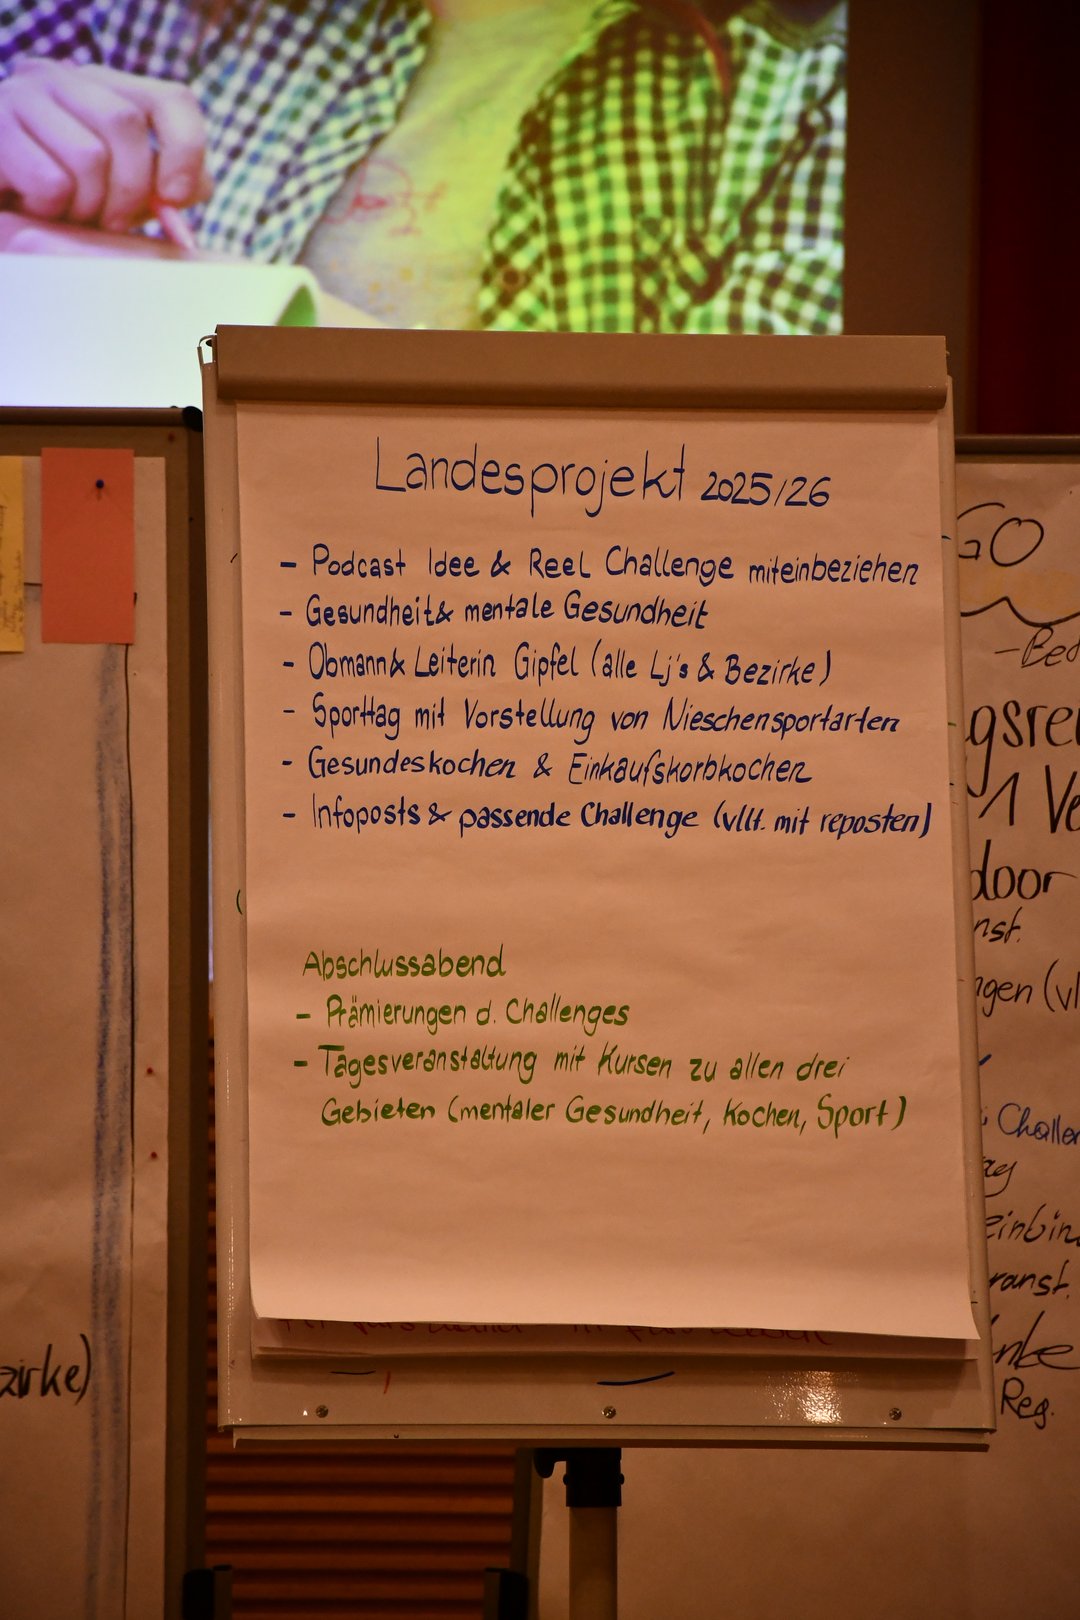 Landesprojekt 2025/26
- Podcast Idee & Reel Challenge miteinbeziehen
- Gesundheit & mentale Gesundheit
- Obmann & Leiterin Gipfel (alle Lj's & Bezirke)
- Sporttag mit Vorstellung von Nieschensportarten
- Gesundeskochen & Einkaufskorbkochen
- Infoposts & passende Challenge (vllt. mit reposten)
Abschlussabend
- Prämierungen d. Challenges
- Tagesveranstaltung mit Kursen zu allen drei
Gebieten (mentaler Gesundheit, Kochen, Sport)
zirke)
GO
- Bed
gsrei
1 Ve
door
nst.
ngen (vl
Challen
ag
einbin
ranst.
Reg.